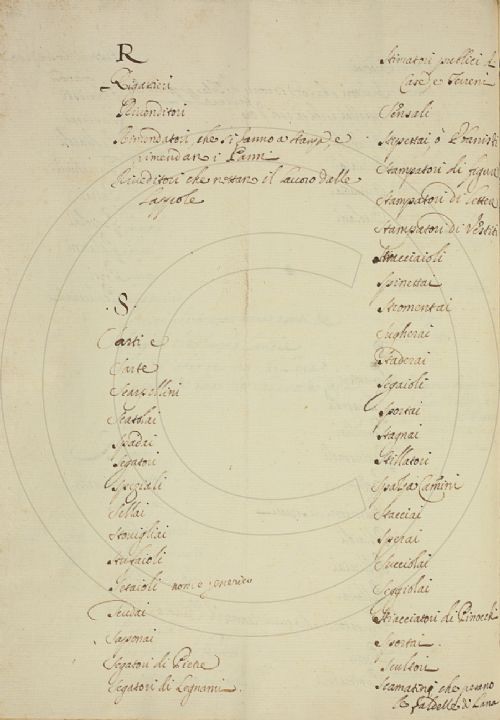 R
Rigattieri
Rivenditori
Rimendatori, che si fanno a stamp, e
rimendan i Panni
Riveditori che nettan il lavoro delle
.S.
Sarti e
Sarte
Scarpellini
Scatolai
Spadai
Segatori
Speziali
Sellai
Stovigliai
Stufaioli
Setaioli nome generico
Scudai
Saponai
Segatori di Pietre
Segatori di Legnami.
Stimatori publici d
Case, e Terreni
Sensali
Stipettai, ò Ebanisti
Stampatori di figur
Stampatori di Letter
Stampatori di Vestiti
Stracciaioli
Spinettai
Stromentai
Sugherai
Staderai
Segaioli
Sportai
Stagnai
Stillatori
Spazza Camini
Stacciai
Sperai
Succiolai
Seggiolai
Stiacciatori di Pinocchi
Sportai.
Scultori
che pesano
le faldelle di Lana